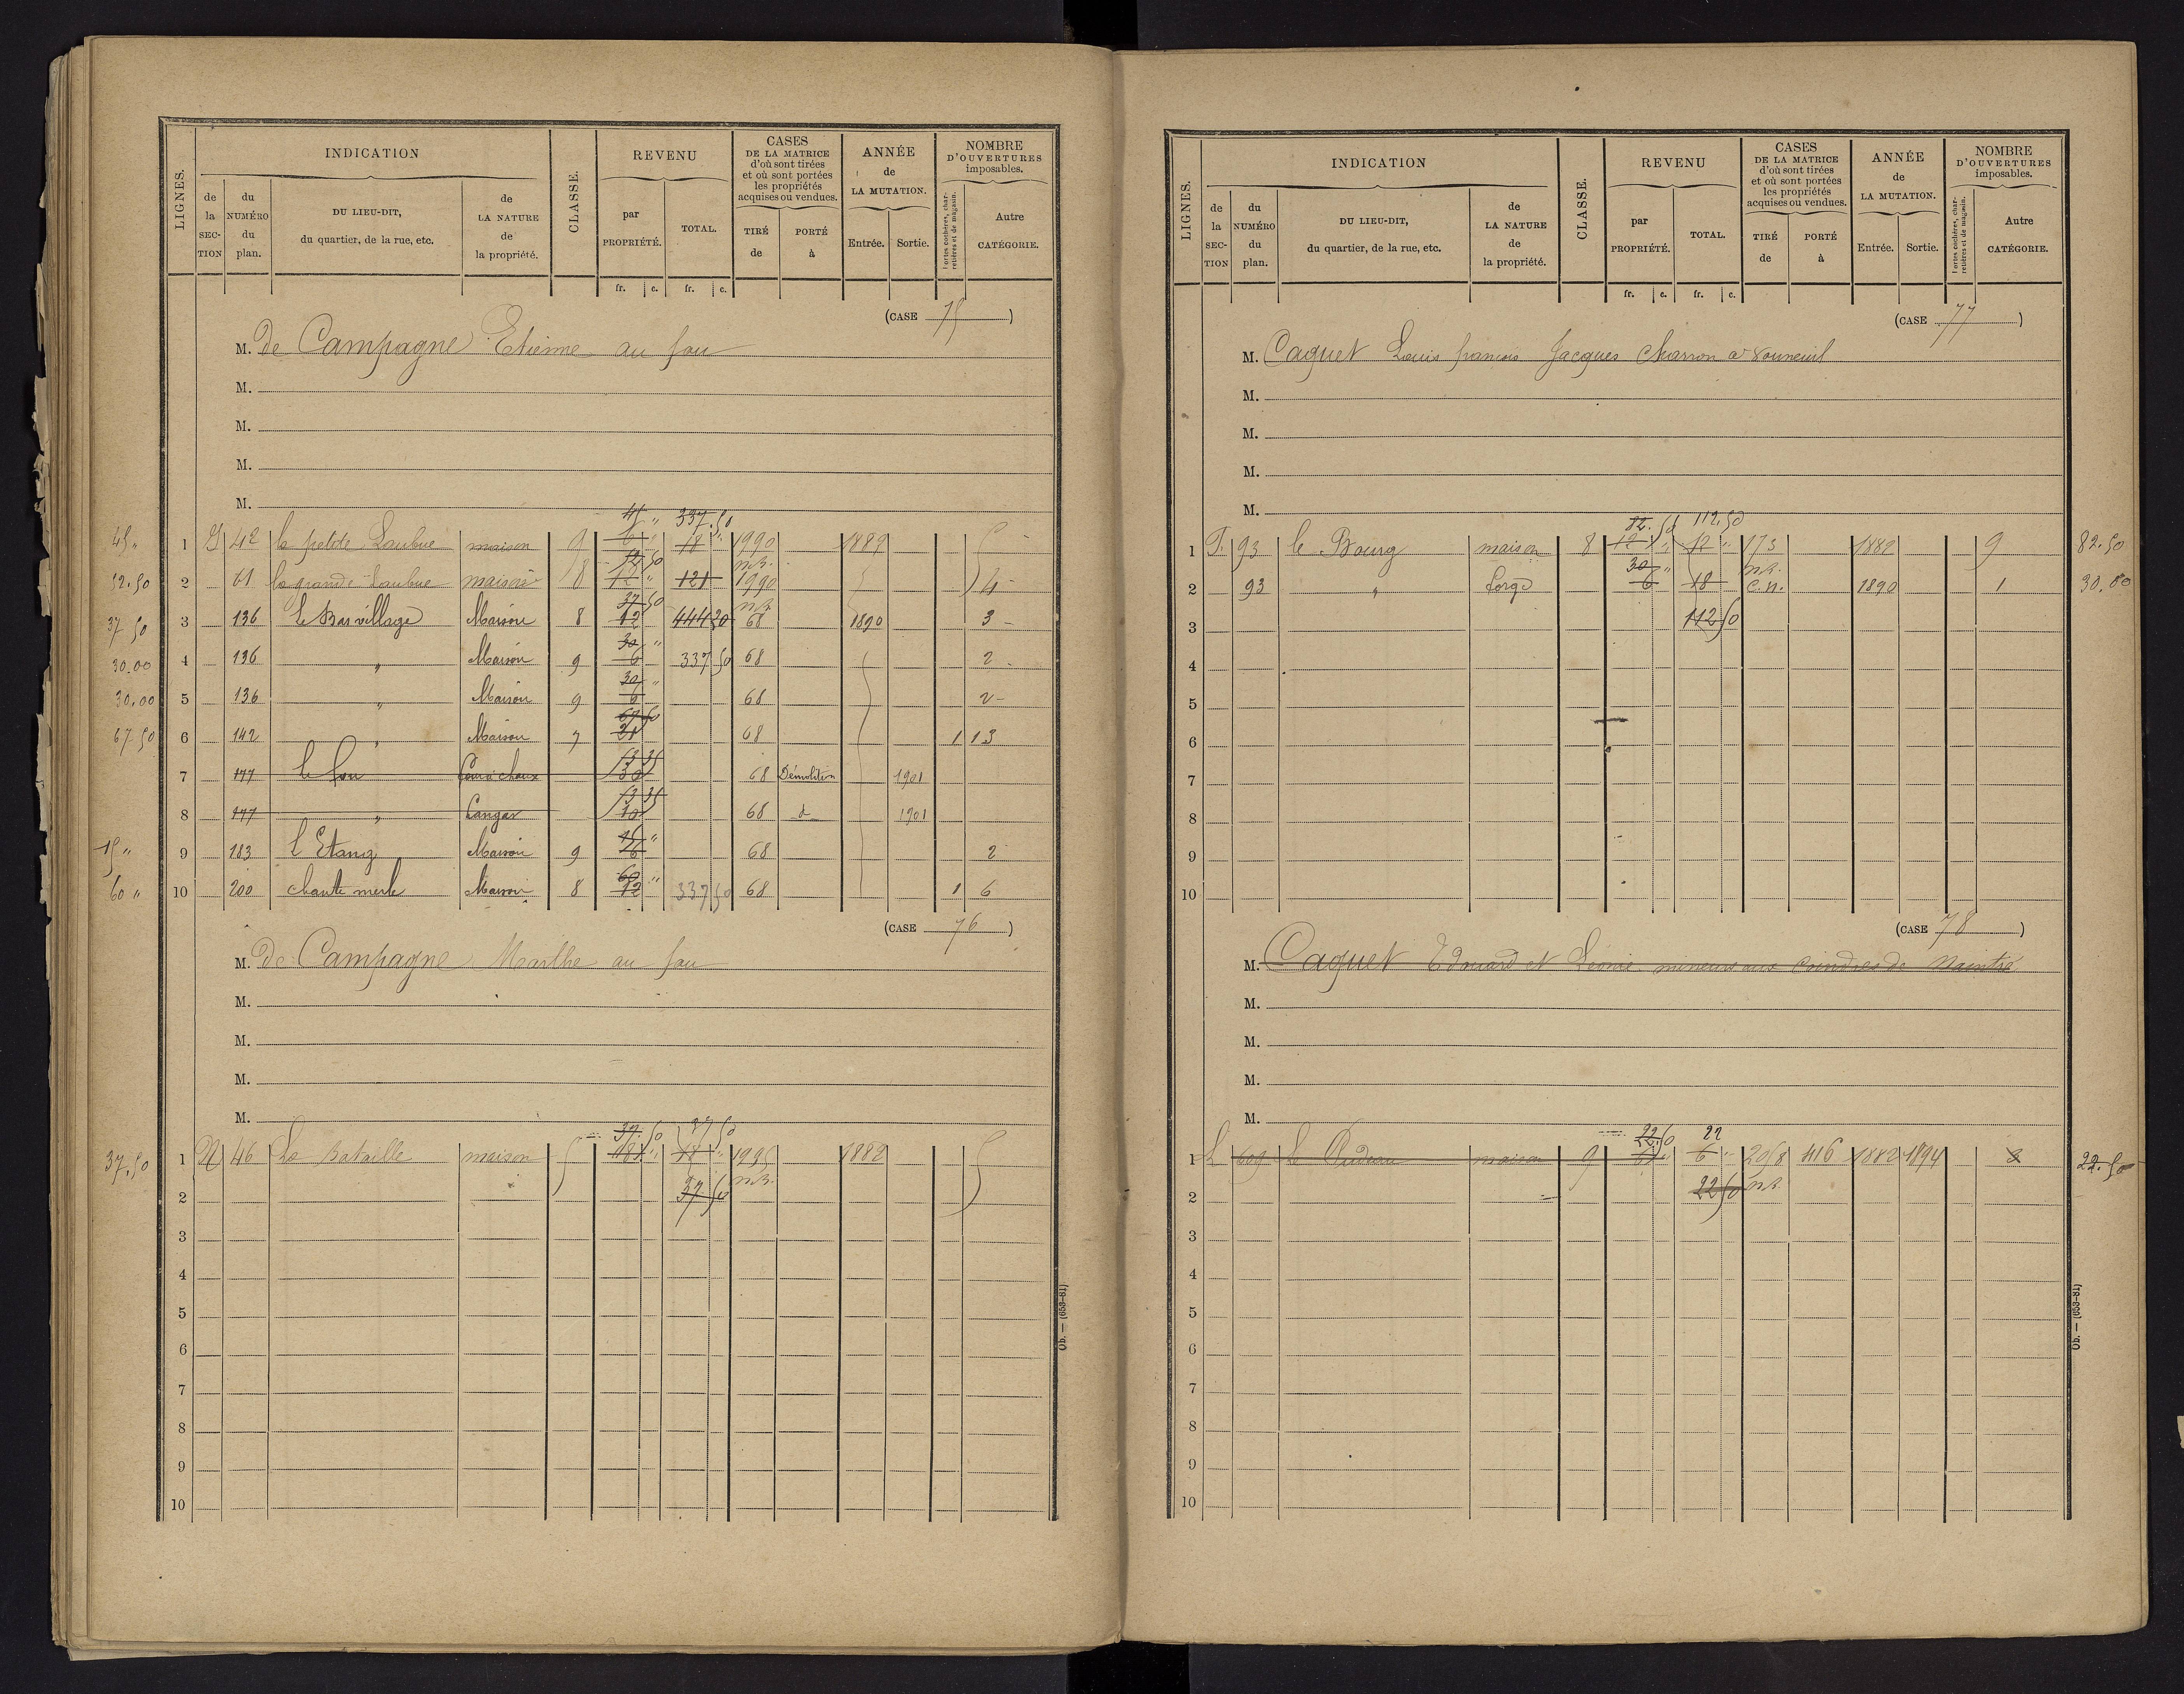 LIGNES. INDICATION CLASSE. REVENU CASES DE LA MATRICE d'où sont tirées et où sont portées les propriétés acquises ou vendues. ANNÉE de LA MUTATION. NOMBRE D'OUVERTURES imposables.
de la SECTION du NUMÉRO du plan. DU LIEU-DIT, du quartier, de la rue, etc. de LA NATURE de la propriété. par PROPRIÉTÉ. TOTAL. TIRÉ de PORTÉ à Entrée. Sortie. Portes cochères, charretières et de magasin. Autre CATÉGORIE.
fr. c. fr. c.
(CASE 75)
M. de Campagne Etienne au fou
M.
M.
M.
M.
45 " 337.50
45 " 1 G 42 la petite Laubue maison 9 6 " 18 " 1990 1889 5
52 50 n.R.
52.50 2 61 la grande Laubue maison 8 12 " 121 1990 4
37 50 n.R.
37.50 3 136 le Bas village Maison 8 12 444 20 68 1890 3
30 "
30.00 4 136 " Maison 9 6 337 50 68 2
30 "
30.00 5 136 " Maison 9 6 68 2
67 50
67.50 6 142 " Maison 7 21 68 1 13
13 35
7 177 le fou four à chaux 30 68 Démolition 1901
13 35
8 177 " hangar 10 68 d 1901
15 "
15 " 9 183 l'Etang Maison 9 6 68 2
60 "
60 " 10 200 chante merle Maison 8 12 337 50 68 1 6
(CASE 76)
M. de Campagne Marthe au fou
M.
M.
M.
M.
37.50 37 50
37.50 1 N 46 La Bataille maison 5 18 " 18 " 1935 1882 5
2 37 50 n.R.
3
4
5
6
7
8
9
10
Ob. — (653-81)
LIGNES. INDICATION CLASSE. REVENU CASES DE LA MATRICE d'où sont tirées et où sont portées les propriétés acquises ou vendues. ANNÉE de LA MUTATION. NOMBRE D'OUVERTURES imposables.
de la SECTION du NUMÉRO du plan. DU LIEU-DIT, du quartier, de la rue, etc. de LA NATURE de la propriété. par PROPRIÉTÉ. TOTAL. TIRÉ de PORTÉ à Entrée. Sortie. Portes cochères, charretières et de magasin. Autre CATÉGORIE.
fr. c. fr. c.
(CASE 77)
M. Caquet Louis françois Jacques Charron à Vouneuil
M.
M.
M.
M.
82.50 112.50
1 P. 93 le Bourg maison 8 12 " 12 " 173 1882 9 82.50
30 " n.R.
2 93 " forge 6 18 C.N. 1890 1 30.00
3 112 50
4
5
6
7
8
9
10
(CASE 78)
M. Caquet Edouard et Léonie mineurs aux Coindres de Naintré
M.
M.
M.
M.
22.50 22
1 L 609 maison 9 6 " 6 " 2058 416 1882 1894 2 22.50
2 22 50 n.R.
3
4
5
6
7
8
9
10
Ob. — (653-81)